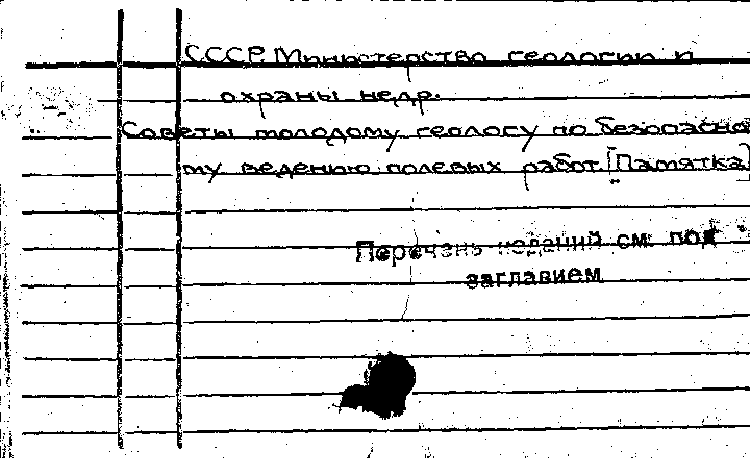 СССР. Министерство геологии и
охраны недр.
Советы молодому геологу по безопасно
му ведению полевых работ. [Памятка]
Перечень изданий см. под
заглавием